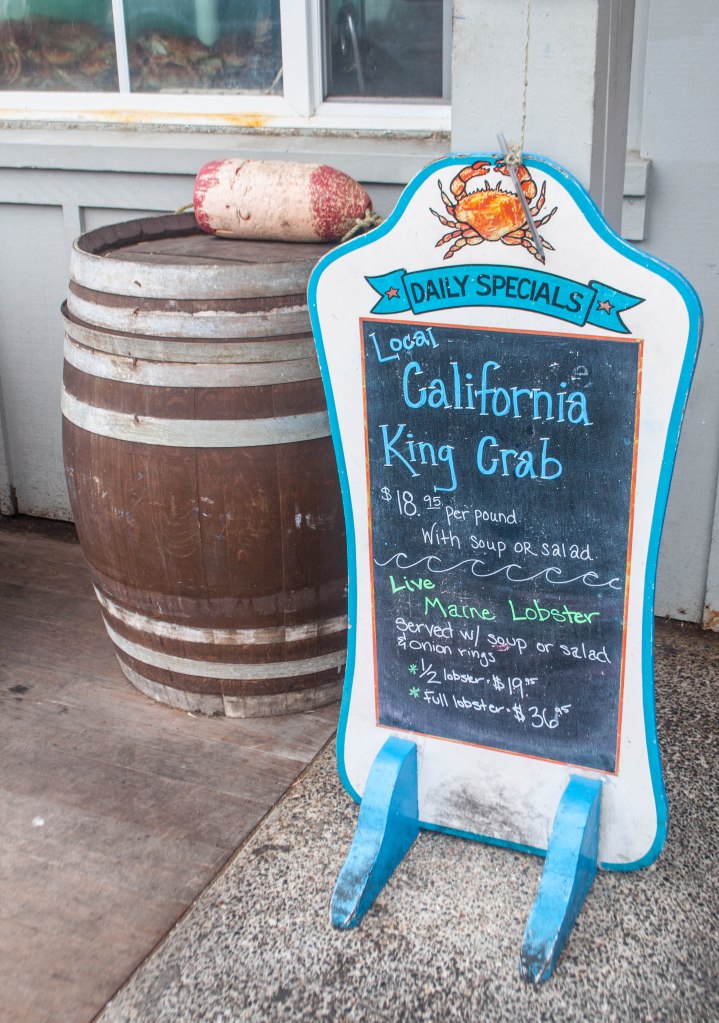 DAILY SPECIALS
Local
California
King Crab
$18.95 per pound
With soup or salad
Live
Maine Lobster
Served w/ soup or salad
& onion rings
* 1/2 lobster · $19.95
* full lobster · $36.95